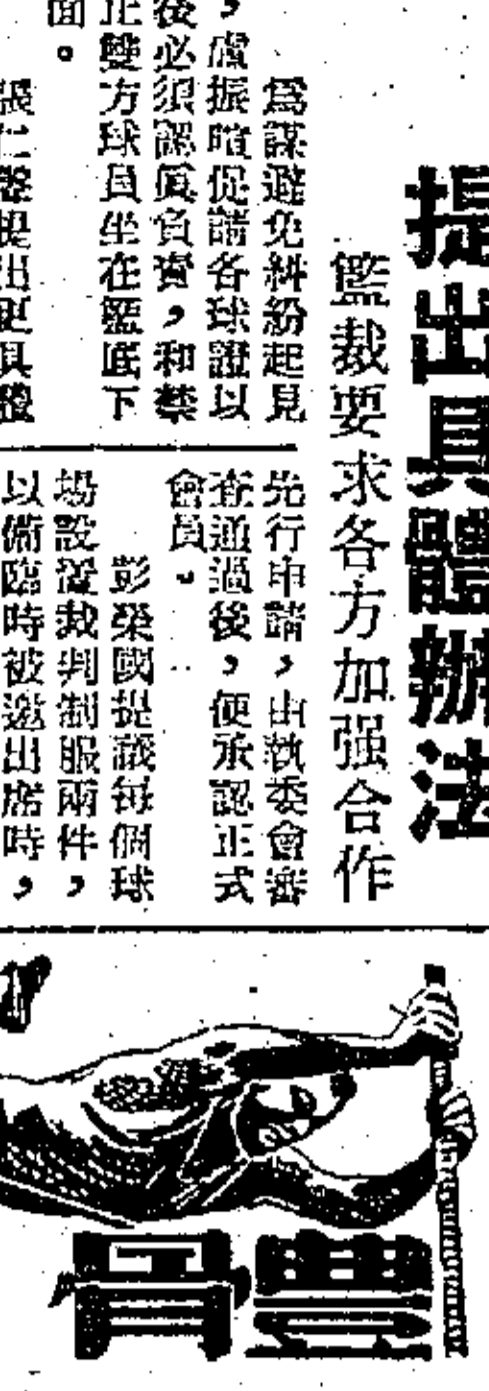 提出具體辦法
籃裁要求各方加强合作
爲謀避免糾紛起見
，盧振暄促請各球證以
後必須認眞負責，和禁
止雙方球員坐在籃底下
面。
張仁
提出更具體
先行申請，由執委會審
查通過後，便承認正式
會員。
彭榮國提議每個球
場設置裁判制服兩件，
以備臨時被邀出席時，